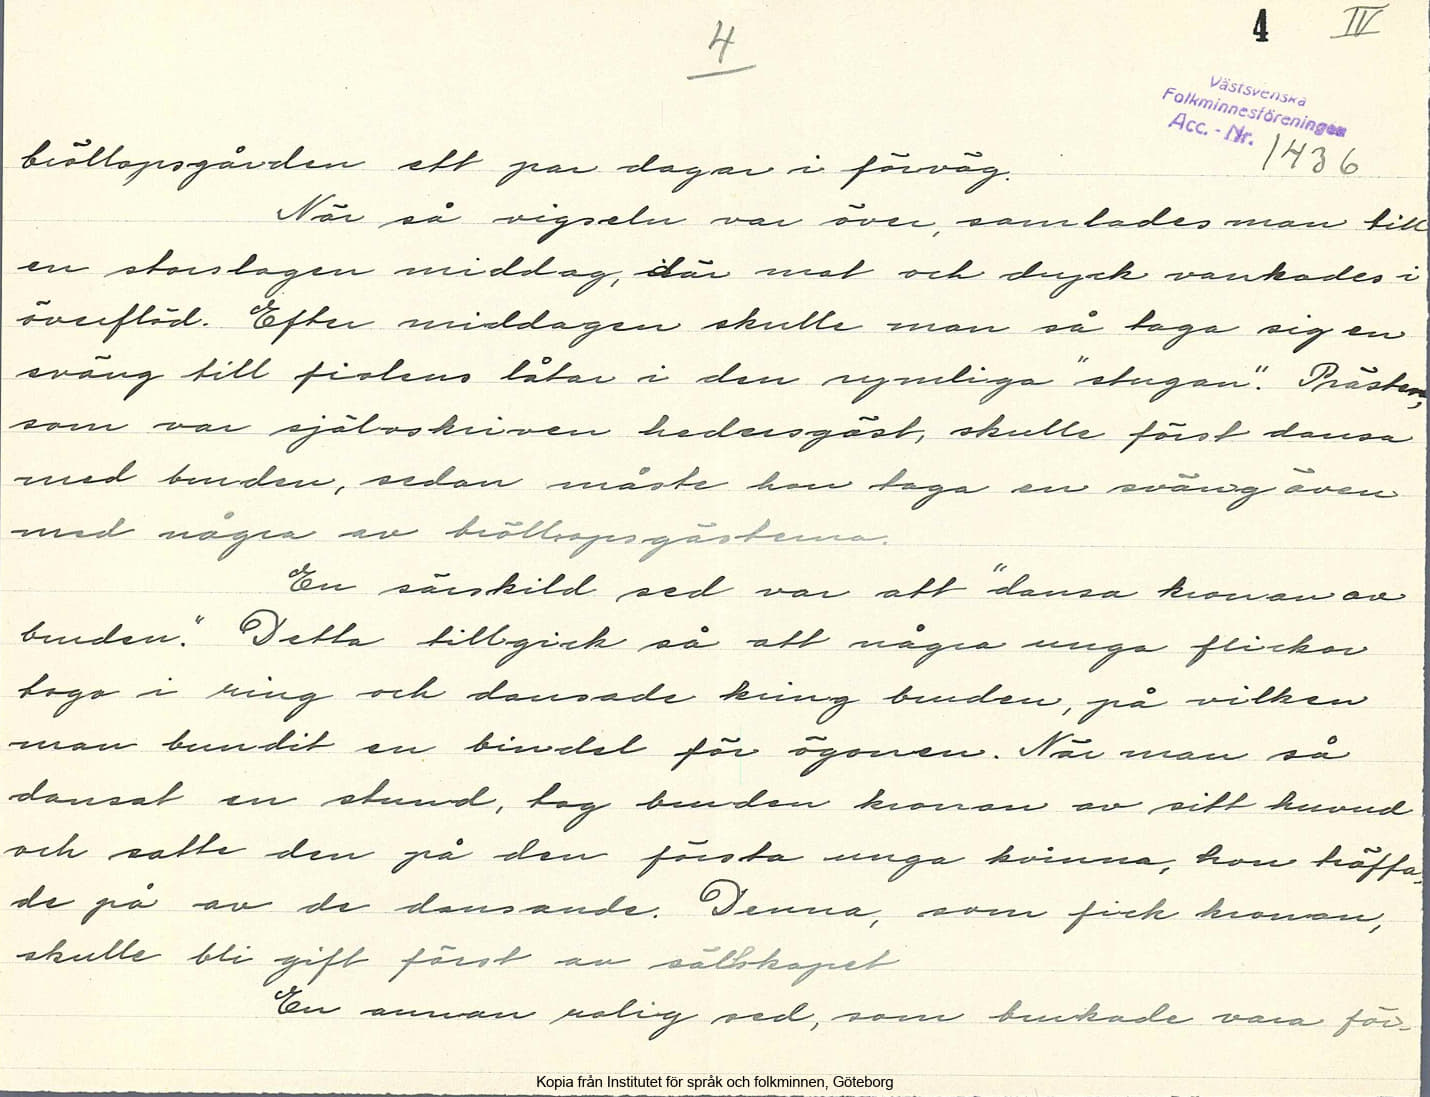 4
4 IV
Västsvenska
Folkminnesföreningen
Acc. - Nr. 1436
bröllopsgården ett par dagar i förväg.
När så vigseln var över, samlades man till
en storslagen middag, där mat och dryck vankades i
överflöd. Efter middagen skulle man så taga sig en
sväng till fiolens låtar i den rymliga "stugan". Prästen,
som var självskriven hedersgäst, skulle först dansa
med bruden, sedan måste han taga en sväng även
med några av bröllopsgästerna.
En särskild sed var att "dansa kronan av
bruden." Detta tillgick så att några unga flickor
togo i ring och dansade kring bruden, på vilken
man bundit en bindel för ögonen. När man så
dansat en stund, tog bruden kronan av sitt huvud
och satte den på den första unga kvinna, hon träffa-
de på av de dansande. Denna, som fick kronan,
skulle bli gift först av sällskapet
En annan rolig sed, som brukade vara för-
Kopia från Institutet för språk och folkminnen, Göteborg